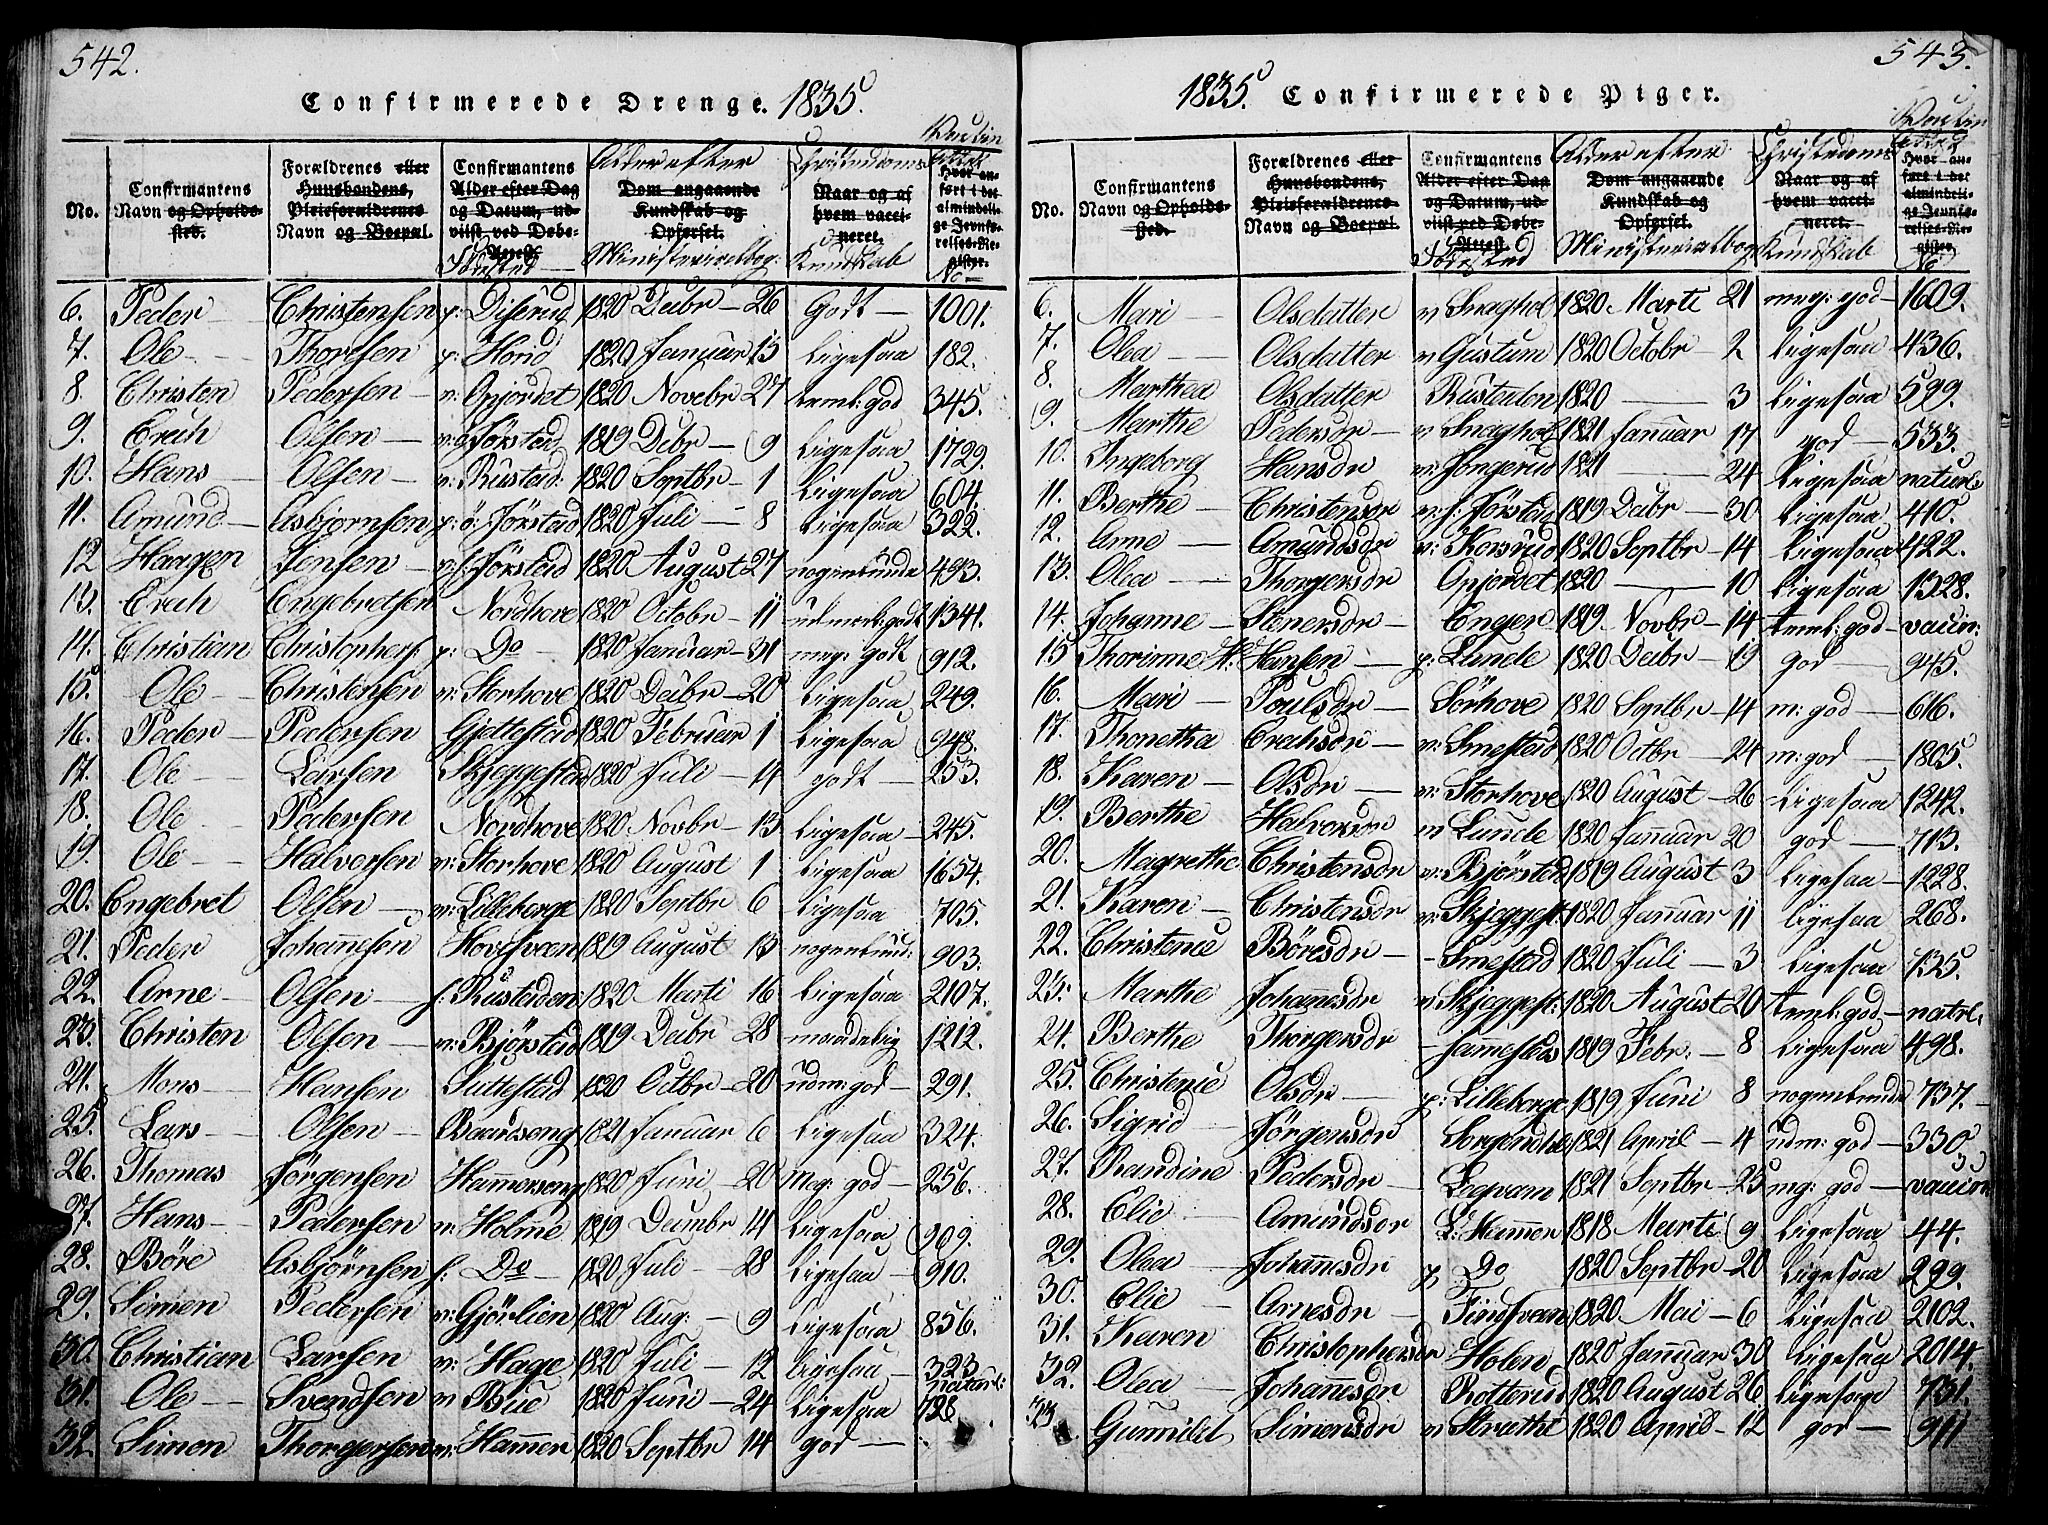 542.
Confirmerede Drenge. 1835.
No.
Confirmantens Navn og Opholdssted.
Forældrenes eller Huusbondens, Pleieforældrenes Navn og Boepæl.
Confirmantens Alder efter Dag og Datum, udviist ved Døbe-Attest.
Alder efter
Dom angaaende Kundskab og Opførsel.
Ministerialbog.
Christendoms
Naar og af hvem vaccineret.
Kundskab
Hvor anført i det almindelige Jevnførelses-Register.
No
6. Peder Christensen p: Diserud 1820 Decbr 26 Godt 1001.
7. Ole Thoresen p: Hond 1820 Januar 13 Ligesaa 182.
8. Christen Pedersen v: Opjordet 1820 Novebr 27 teml: god 345.
9. Erich Olsen v: ø Jørstad 1819 Decbr 9 Ligesaa 1729.
10. Hans Olsen v: Rustad 1820 Septbr 1 Ligesaa 604.
11. Amund Asbjørnsen p: ø: Jørstad 1820 Juli 8 Ligesaa 322.
12 Haagen Jensen Jørstad 1820 August 27 nogenlunde 493.
13. Erich Engebretsen Nordhove 1820 Octobr 11 udmerk: godt 1341.
14. Christian Christophers. p: Do 1820 Januar 31 meg: godt 912.
15. Ole Christensen v: Storhove 1820 Decbr 20 Ligesaa 249.
16. Peder Pedersen Gjettestad 1820 Februar 1 Ligesaa 948.
17. Ole Larsen Skjeggestad 1820 Juli 14 godt 253.
18. Ole Pedersen Nordhove 1820 Novbr 13 Ligesaa 245.
19. Ole Halvorsen v: Storhove 1820 August 1 Ligesaa 1654.
20. Engebret Olsen v: Lilleborge 1820 Septbr 6 Ligesaa 705.
21. Peder Johannesen Hovesveen 1819 August 13 nogenlund: 903.
22. Arne Olsen f. Rustaden 1820 Marti 16 Ligesaa 2107.
23. Christen Olsen v: Bjørstad 1819 Decbr 28 maadelig 1212.
24. Mons Hansen Suttestad 1820 Octbr 20 udm: god 291.
25. Lars Olsen Baardseng 1821 Januar 6 Ligesaa 324.
26. Thomas Jørgensen Hammerseng 1820 Juni 20 Meg: god 256.
27. Hans Pedersen v: Holme 1819 Decmbr 14 Ligesaa 209.
28. Børe Asbjørnsen f: Do 1820 Juli 28 Ligesaa 910.
29. Simen Pedersen v: Gjørlien 1820 Aug: 9 Ligesaa 856.
30. Christian Larsen v: Hage 1820 Juli 12 Ligesaa 323
31. Ole Svendsen v Bue 1820 Juni 24 Ligesaa naturl:
32. Simon Thorgersen v: Hammer 1820 Septbr 14 god
543.
1835. Confirmerede Piger.
No.
Confirmantens Navn og Opholdssted.
Forældrenes eller Huusbondens, Pleieforældrenes Navn og Boepæl.
Confirmantens Alder efter Dag og Datum, udviist ved Døbe-Attest.
Fødested
Alder efter
Dom angaaende Kundskab og Opførsel.
Ministerialbog
Christendoms
Naar og af hvem vaccineret.
Kundskab
Hvor anført i det almindelige Jevnførelses-Register.
No
6. Mari Olsdatter v Snaghol 1820 Marti 21 meg: god 1609.
7. Olea Olsdatter v Gustum 1820 Octobr 2 Ligesaa 436.
8. Marthea Olsdatter Rustaden 1820 3 Ligesaa 599.
9. Marthe Pedersdr v Snaghol 1821 Januar 17 god 533.
10. Ingeborg Hansdr v: Jongerud 1821 24 Ligesaa naturl.
11. Berthe Christensdr v. f: Jørstad 1819 Decbr 30 Ligesaa 410.
12. Anne Amundsdr v: Korsrud 1820 Septbr 14 Ligesaa 422.
13. Olea Thorgersdr Opjordet 1820 10 Ligesaa 1328.
14. Johanne Stenersdr Engen 1819 Novbr 14 teml: god vaccin:
15 Thorinne H. Hansen p: Lunde 1820 Decbr 19 god 945.
16. Mari Poulsdr Sørhove 1820 Septbr 14 m: god 616.
17. Thonetha Erichsdr v: Smestad 1820 Octbr 24 m: god 1805.
18. Karen Olsdr v: Storhove 1820 August 26 Ligesaa 1242.
19. Berthe Halvorsdr v Lunde 1820 Januar 20 god 713.
20. Magrethe Christensdr v: Bjørstad 1819 August 3 Ligesaa 1228.
21. Karen Christensdr v: Skjeggest: 1820 Januar 11 Ligesaa 268.
22. Christence Børesdr Smestad 1820 Juli 3 Ligesaa 735.
23. Marthe Johannsdr v Skjeggest: 1820 August 20 teml: god natrl.
24. Berthe Thorgersdr Jammestad 1819 Febr: 8 Ligesaa 498.
25. Christence Olsdr p: Lilleborge 1819 Juni 8 nogenlunde 737.
26. Sigrid Jørgensdr 1821 April 4 udm: god 330.
27. Randine Pedersdr 1821 Septbr 25 mg: god vaccin
28. Elie Amundsdr L: Hammer 1818 Marti 9 Ligesaa 44.
29. Olea Johannsdr p Do 1820 Septbr 20 Ligesaa 299.
30. Elie Arnesdr Findsveen 1820 Mai 6 Ligesaa 2102.
31. Karen Christophersdr Holen 1820 Januar 30 Ligesaa 2014.
32. Olea Johannsdr Rotterud 1820 August 26 Ligesaa 731.
33 Gunnild Simensdr v Strethe 1820 April 12 god 911